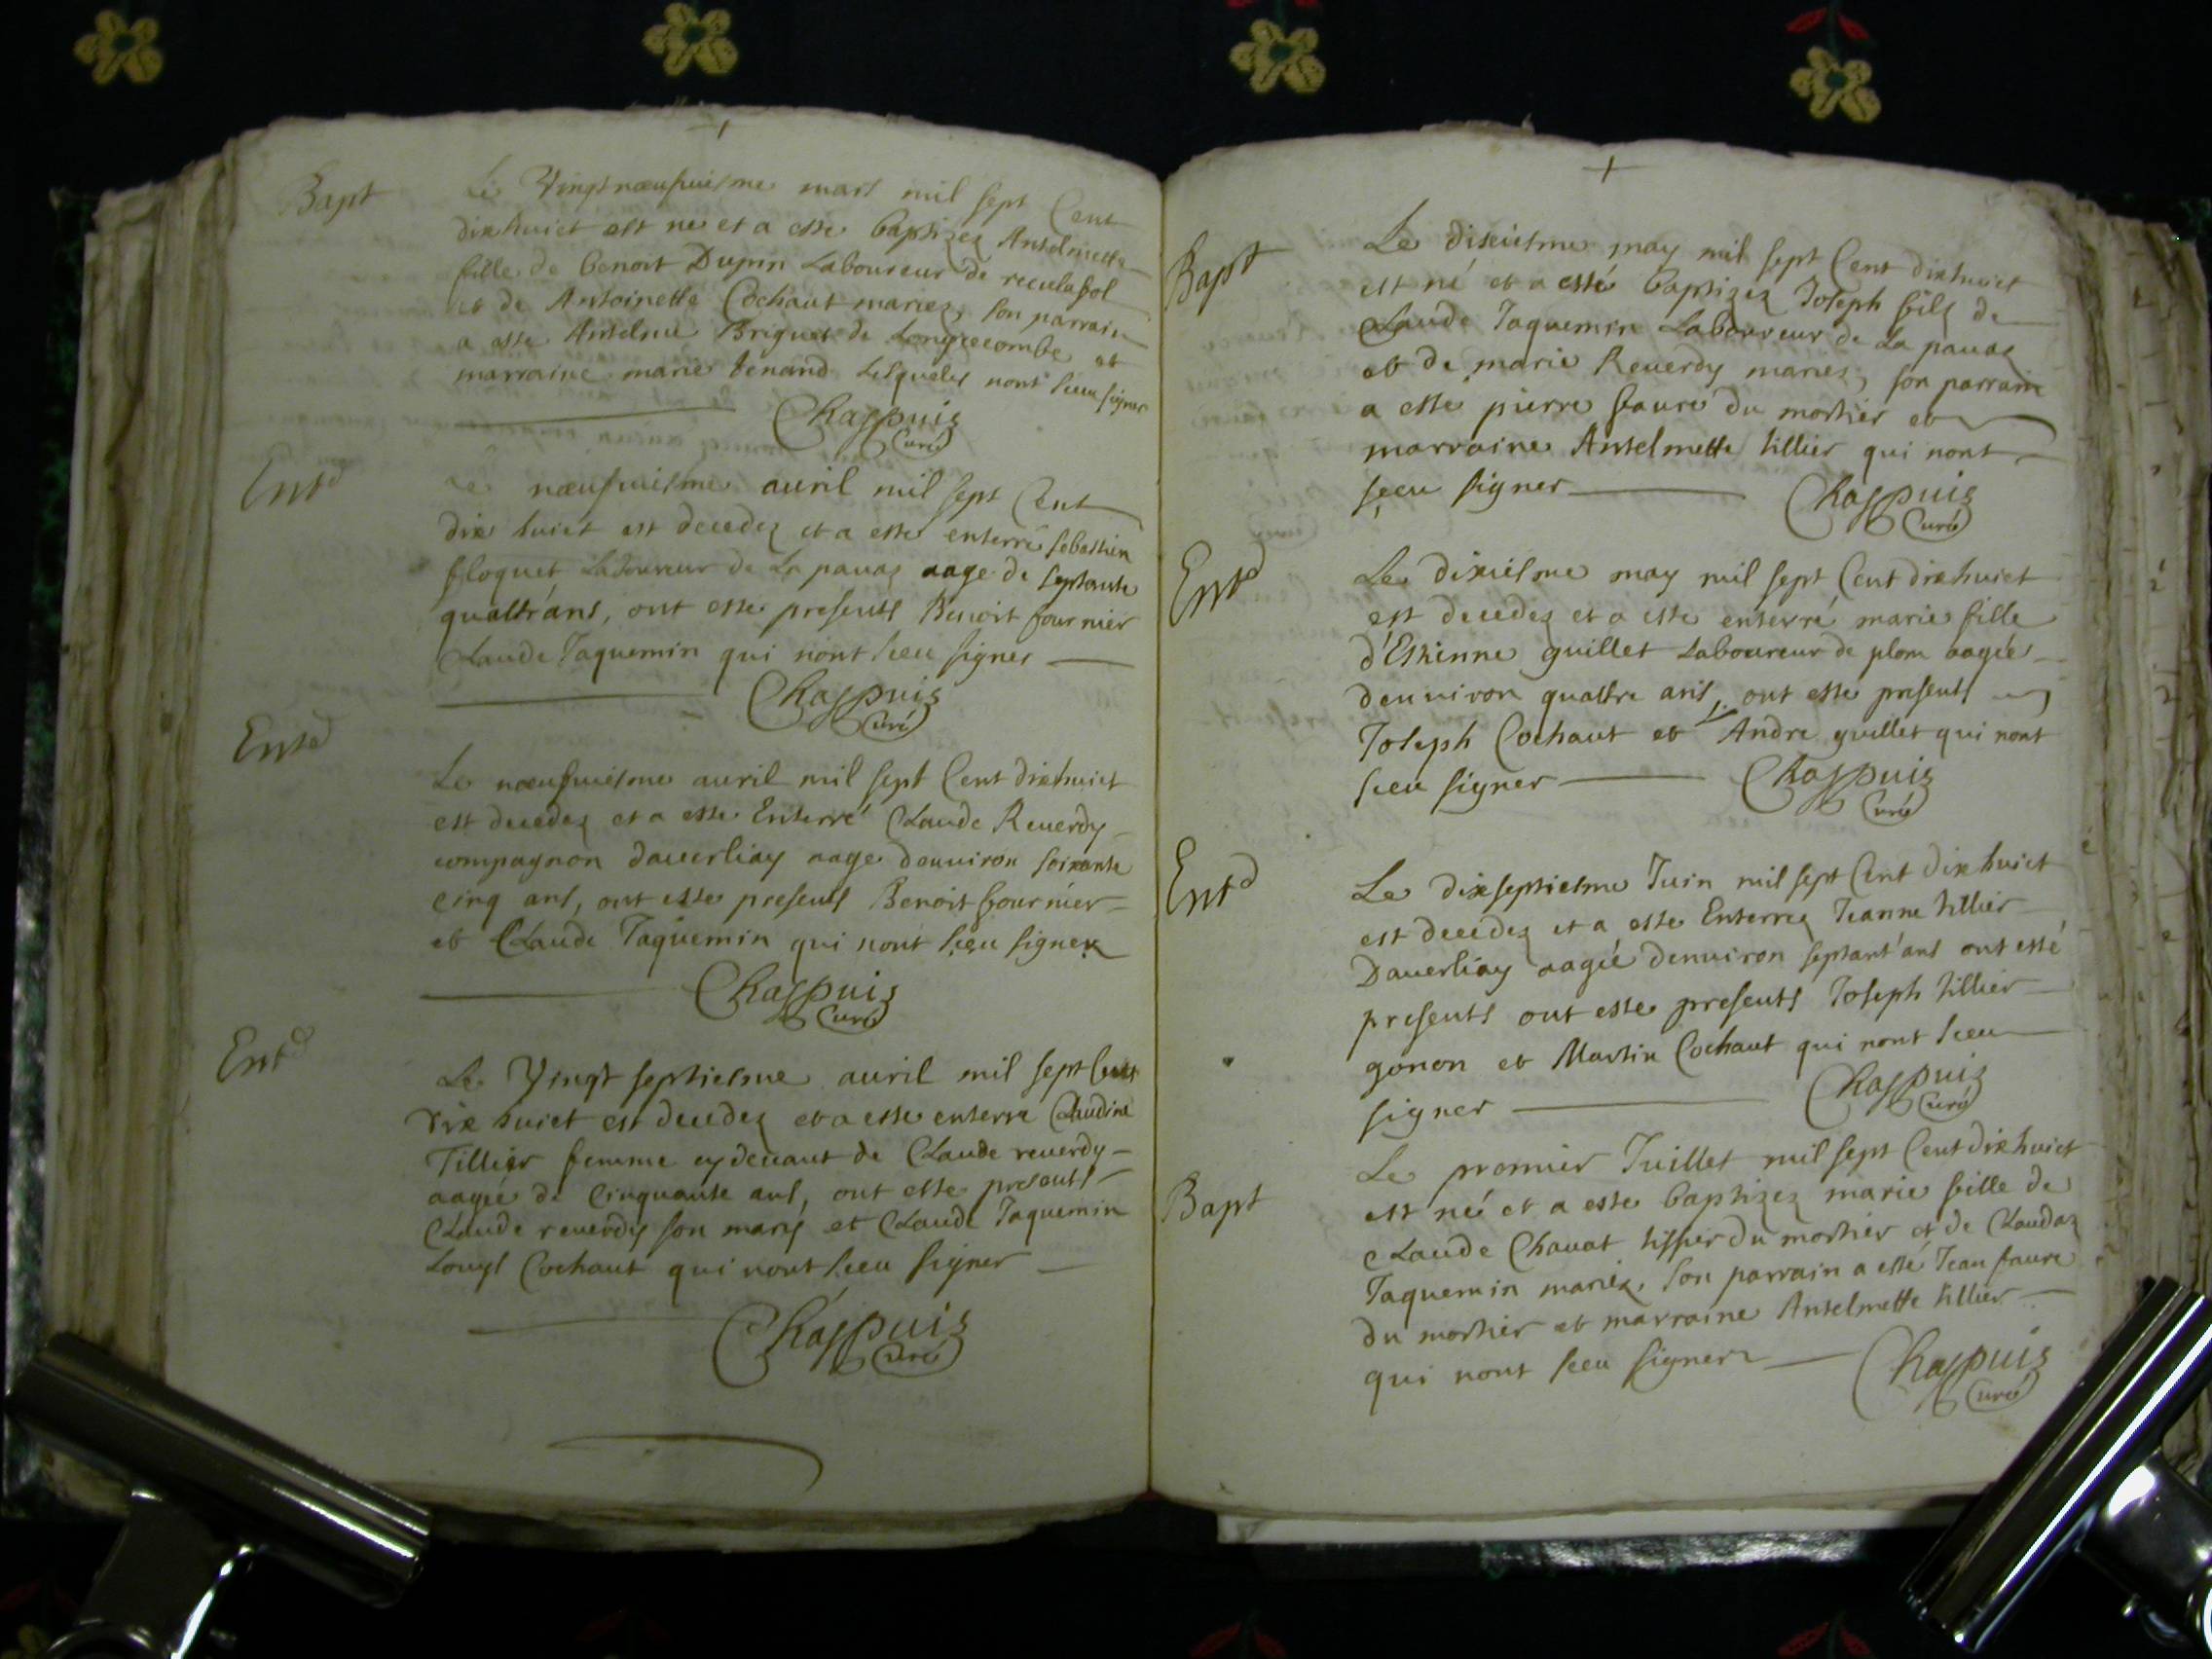 Bapt
Le Vingtnoeufuiesme mars mil sept Cent
dixhuict est né et a esté baptizez Antelmette
fille de benoit Dupin Laboureur de reculafol
et de Antoinette Cochaut mariez, son parrain
a esté Antelme Briguet de Longecombe et
marraine marie tenand Lesqueles nont sceu signer
Chappuis
Curé
Entd
Le noeufuiesme auril mil sept Cent
dix huict est decedez et a esté enterré sebastien
floquet Laboureur de La pauaz aage de septante
quattr'ans, ont esté présents Benoit fournier
Claude Jaquemin qui n'ont sceu signer
Chappuis
Curé
Entd
Le noeufuiesme auril mil sept Cent dixhuict
est decedez et a esté Enterré Claude Reuerdy
compagnon dauerliay aage denuiron soixante
cinq ans, ont esté presents Benoit fournier
et Claude Jaquemin qui nont sceu signer
Chappuis
Curé
Entd
Le Vingt septiesme auril mil sept Cent
dix huict est decedez et a esté enterré Claudine
Tillier femme cydeuant de Claude reuerdy
aagée de Cinquante ans, ont esté presents
Claude reuerdy son marÿ et Claude Jaquemin
Louys Cochaut qui nont sceu signer
Chappuis
Curé
Bapt
Le dixiesme may mil sept Cent dixhuict
est né et a esté baptizez Joseph fils de
Claude Jaquemin Laboureur de La pauaz
et de marie Reuerdy mariez, son parrain
a esté pierre faure du mortier et
marraine Antelmette tillier qui nont
sceu signer
Chappuis
Curé
Entd
Le dixiesme may mil sept Cent dixhuict
est decedez et a esté enterré marie fille
d'Estienne guillet Laboureur de plom aagée
denuiron quattre ans, ont esté presents
Joseph Cochaut et Andre guillet qui nont
sceu signer
Chappuis
Curé
Entd
Le dixseptiesme Juin mil sept Cent dix huict
est decedez et a esté Enterrez Jeanne tillier
Dauerliay aagée denuiron septant'ans ont esté
presents ont esté presents Joseph tillier
gonon et Martin Cochaut qui nont sceu
signer
Chappuis
Curé
Bapt
Le premier Juillet mil sept Cent dixhuict
est né et a esté baptizez marie fille de
Claude Chauat tissier du mortier et de Claudaz
Jaquemin mariez, son parrain a esté Jean faure
du mortier et marraine Antelmette tillier
qui nont sceu signer
Chappuis
Curé